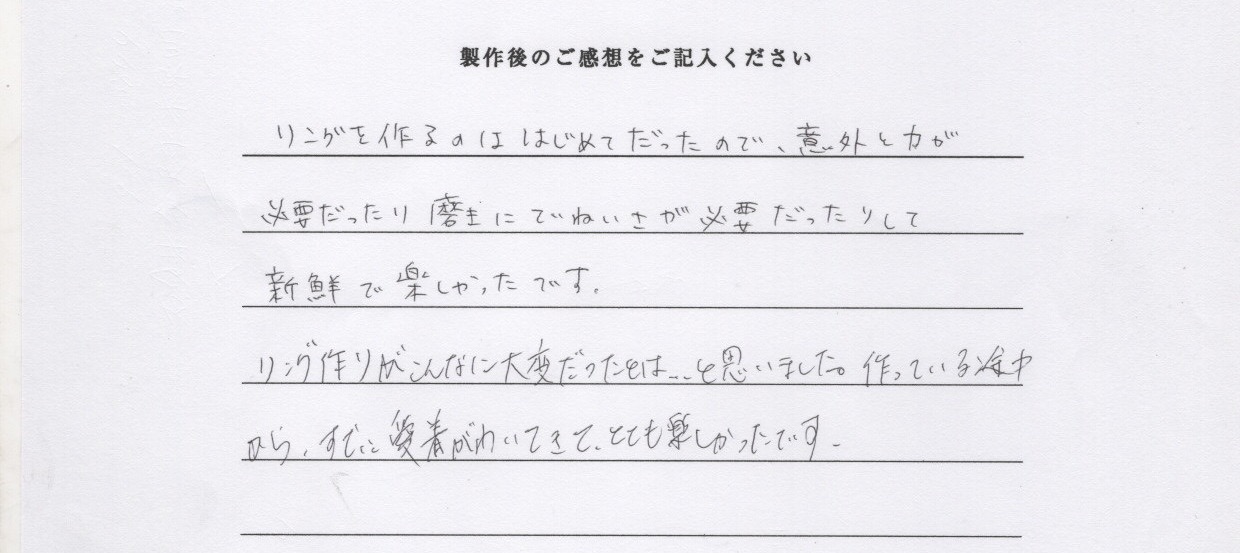 製作後のご感想をご記入ください
リングを作るのははじめてだったので、意外と力が
必要だったり磨きにていねいさが必要だったりして
新鮮で楽しかったです。
リング作りがこんなに大変だったとは...と思いました。作っている途中
から、すでに愛着がわいてきて、とても楽しかったです。